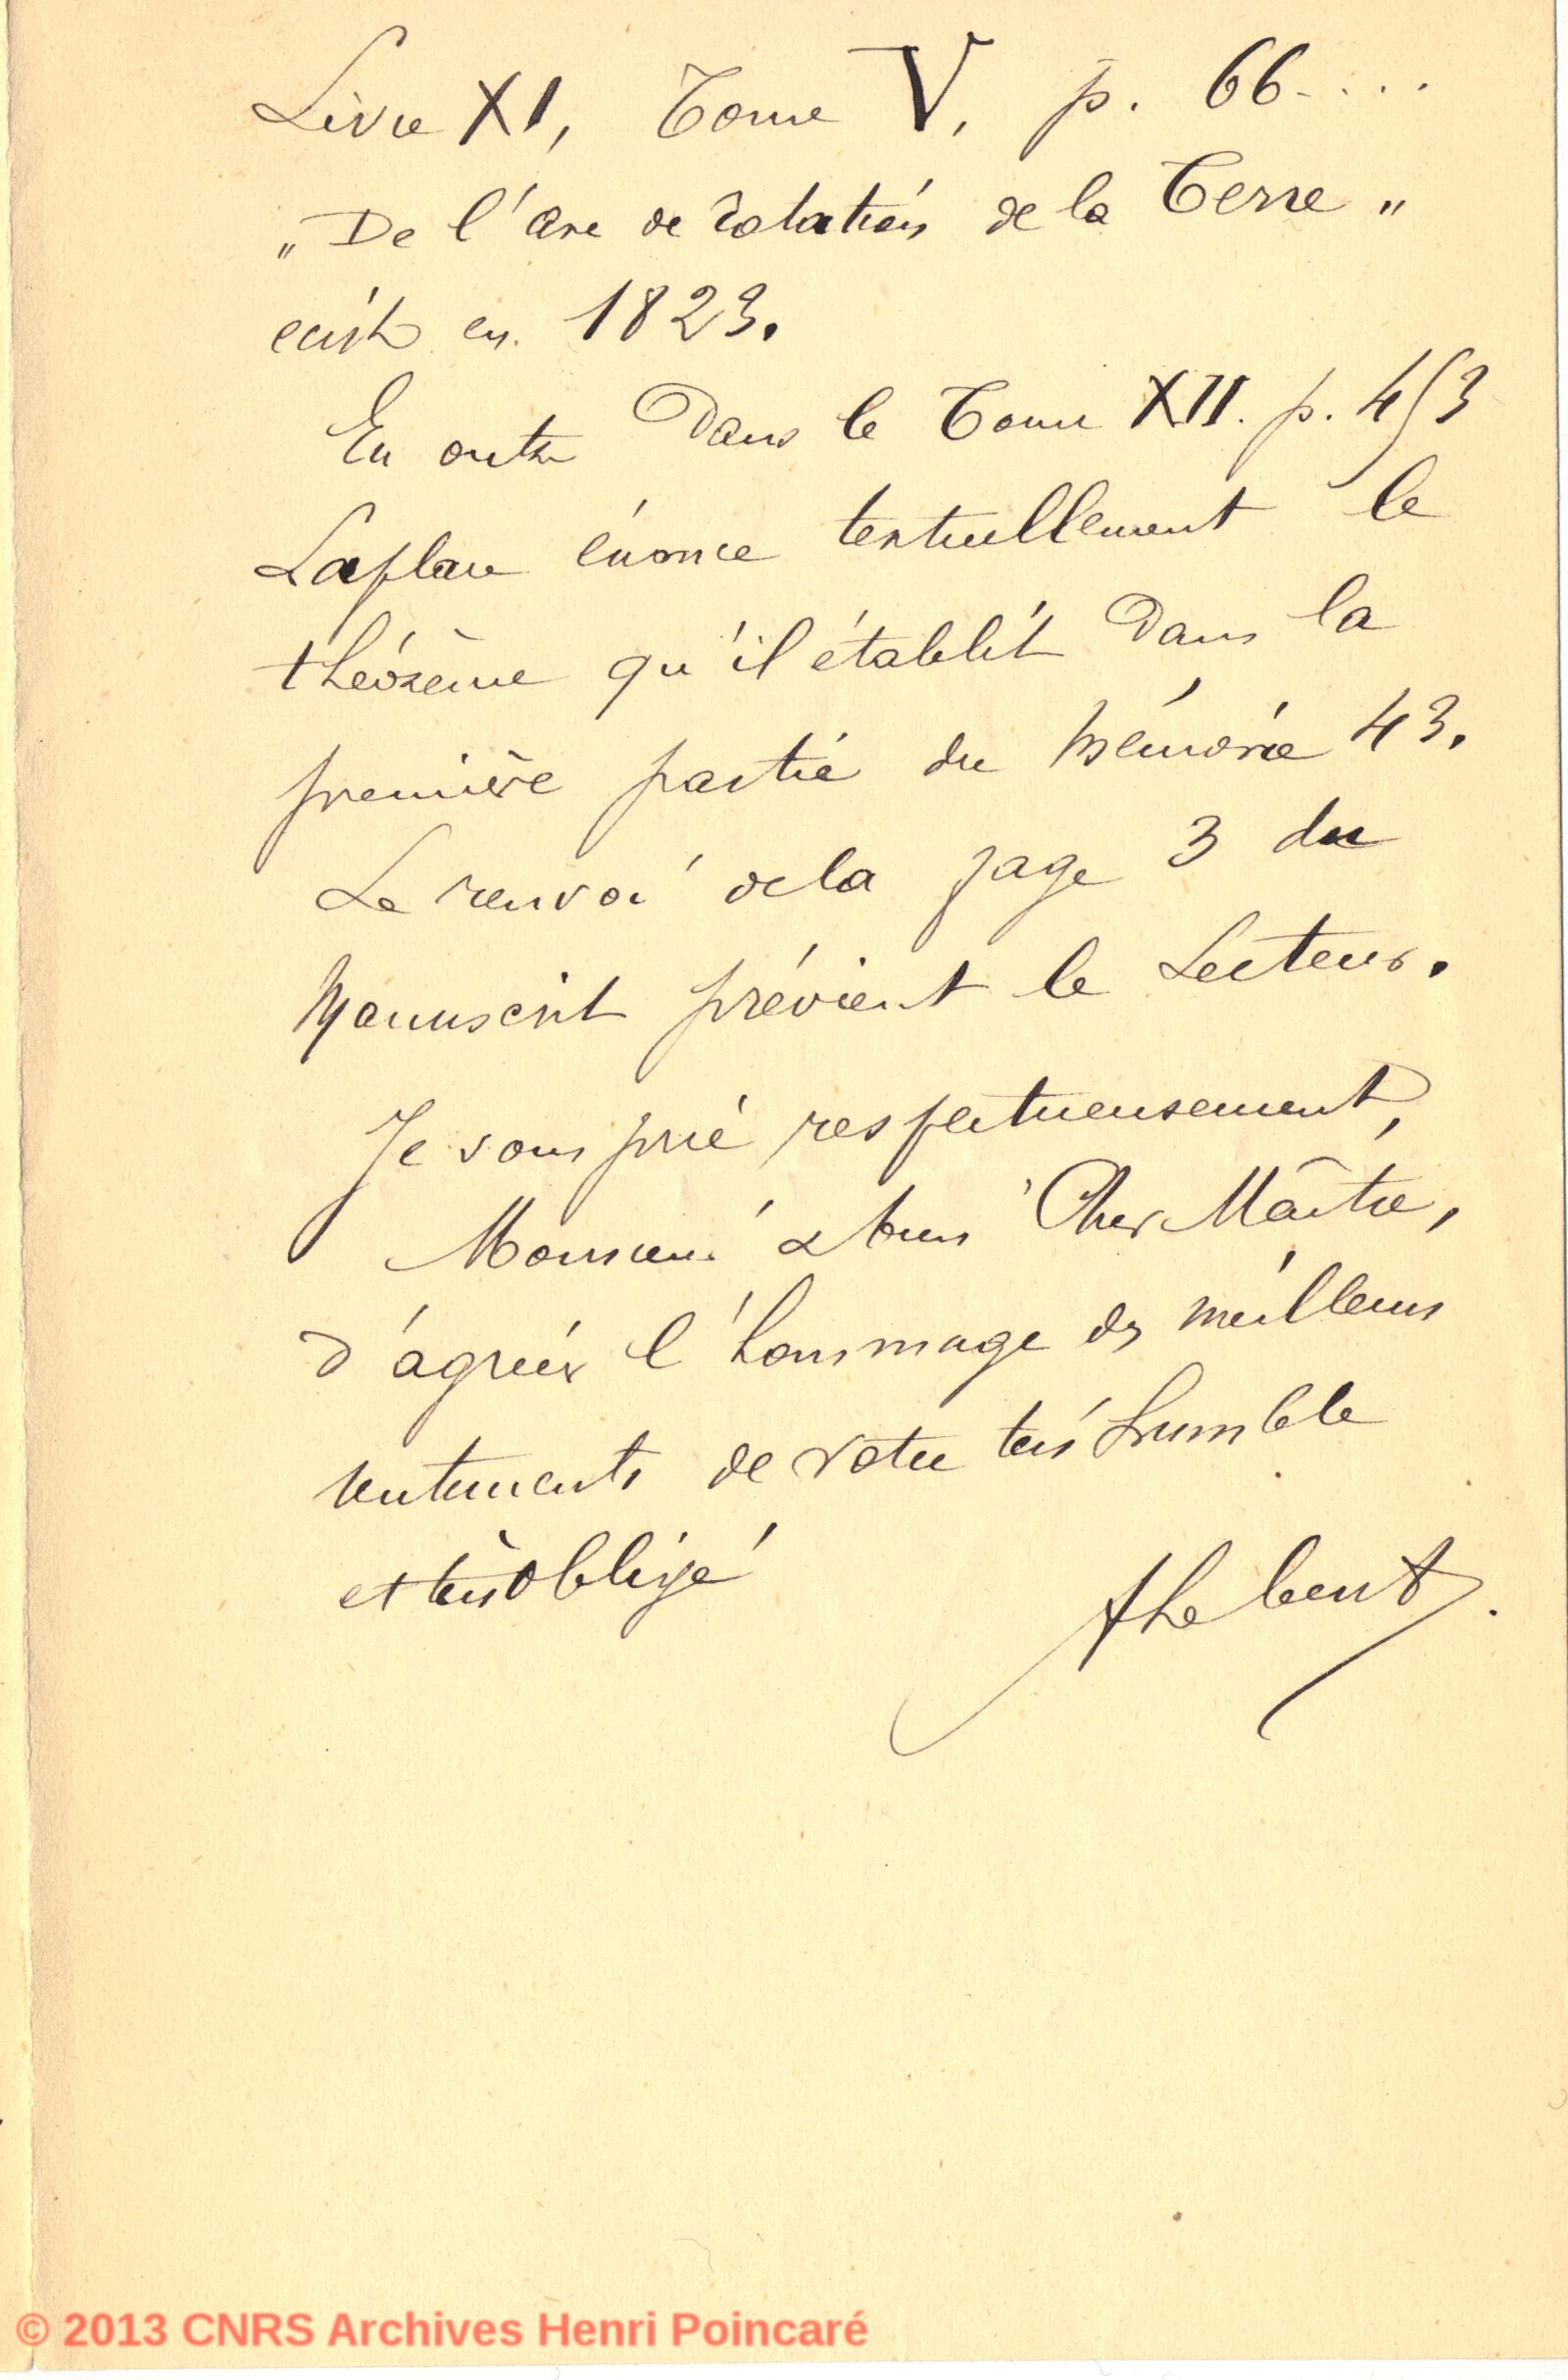 Livre XI, Tome V, p. 66....
„De l'axe de rotation de la Terre"
écrit en 1823.
En outre dans le Tome XII. p. 453
Laplace énonce textuellement le
théorème qu'il établit dans la
première partie du Mémoire 43.
Le renvoi de la page 3 du
Manuscrit prévient le Lecteur.
Je vous prie respectueusement,
Monsieur & bien Cher Maître,
d'agréer l'hommage des meilleurs
sentiments de votre très humble
et très obligé
ALebeuf.
© 2013 CNRS Archives Henri Poincaré